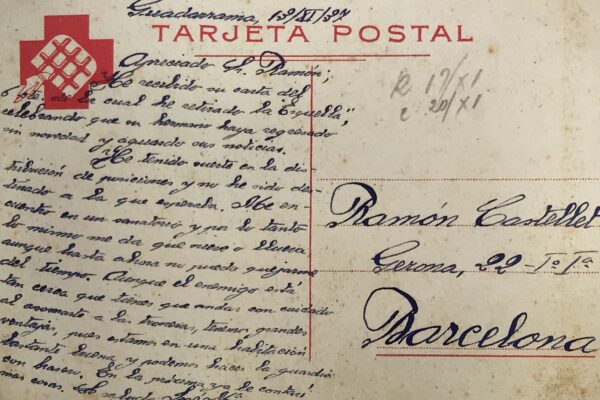 Guadarrama, 13/XI/37
TARJETA POSTAL
Apreciado Sr. Ramón;
He recibido su carta del
6 de la cual he retirado la Esquella,
celebrando que su hermano haya regresado
sin novedad y aguardo sus noticias.
He tenido suerte en la dis-
tribución de posiciones y no he sido des-
tinado a la que esperaba. Me en-
cuentro en un sanatorio y por lo tanto
lo mismo me da que nieve o llueva
aunque hasta ahora no puedo quejarme
del tiempo. Aunque el enemigo está
tan cerca que tienes que andar con cuidado
al asomarte a las troneras, tenemos grandes
ventajas, pues estamos en una habitación
bastante buena y podemos hacer la guardia
con brasero. En la próxima ya le contaré
más cosas. Le saluda
R 17/XI
c 20/XI
Ramón Castellet
Gerona, 22 - 1º 1ª
Barcelona